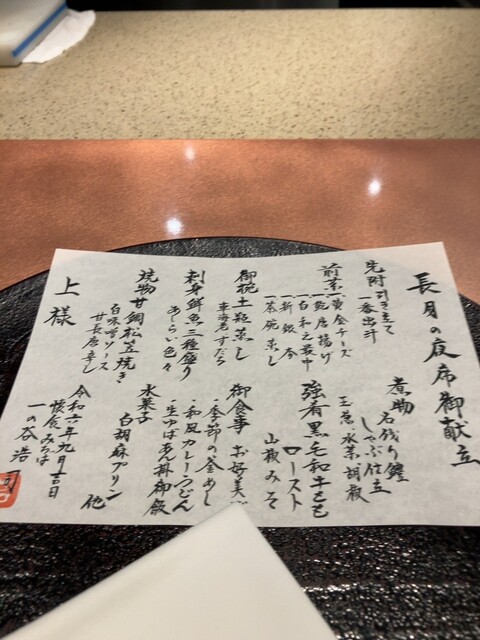 長月の夜席御献立
先附 引き立て
一番出汁
前菜 一黄金チーズ
一鮑唐揚げ
一百和え最中
一新銀杏
一茶碗蒸し
御椀 土瓶蒸し
車海老 すだち
刺身 鮮魚三種盛り
あしらい色々
焼物 甘鯛松笠焼き
白味噌ソース
甘長唐辛し
上様
煮物 名残り鱧
しゃぶ仕立
玉葱・水菜 胡椒
強肴 黒毛和牛ヒレ
ロースト
山椒みそ
御食事 お好美で
・季節の釜めし
・和風カレーうどん
・生ゆばあん丼御飯
水菓子
白胡麻プリン 他
令和六年九月吉日
懐食みちば
一の谷浩司